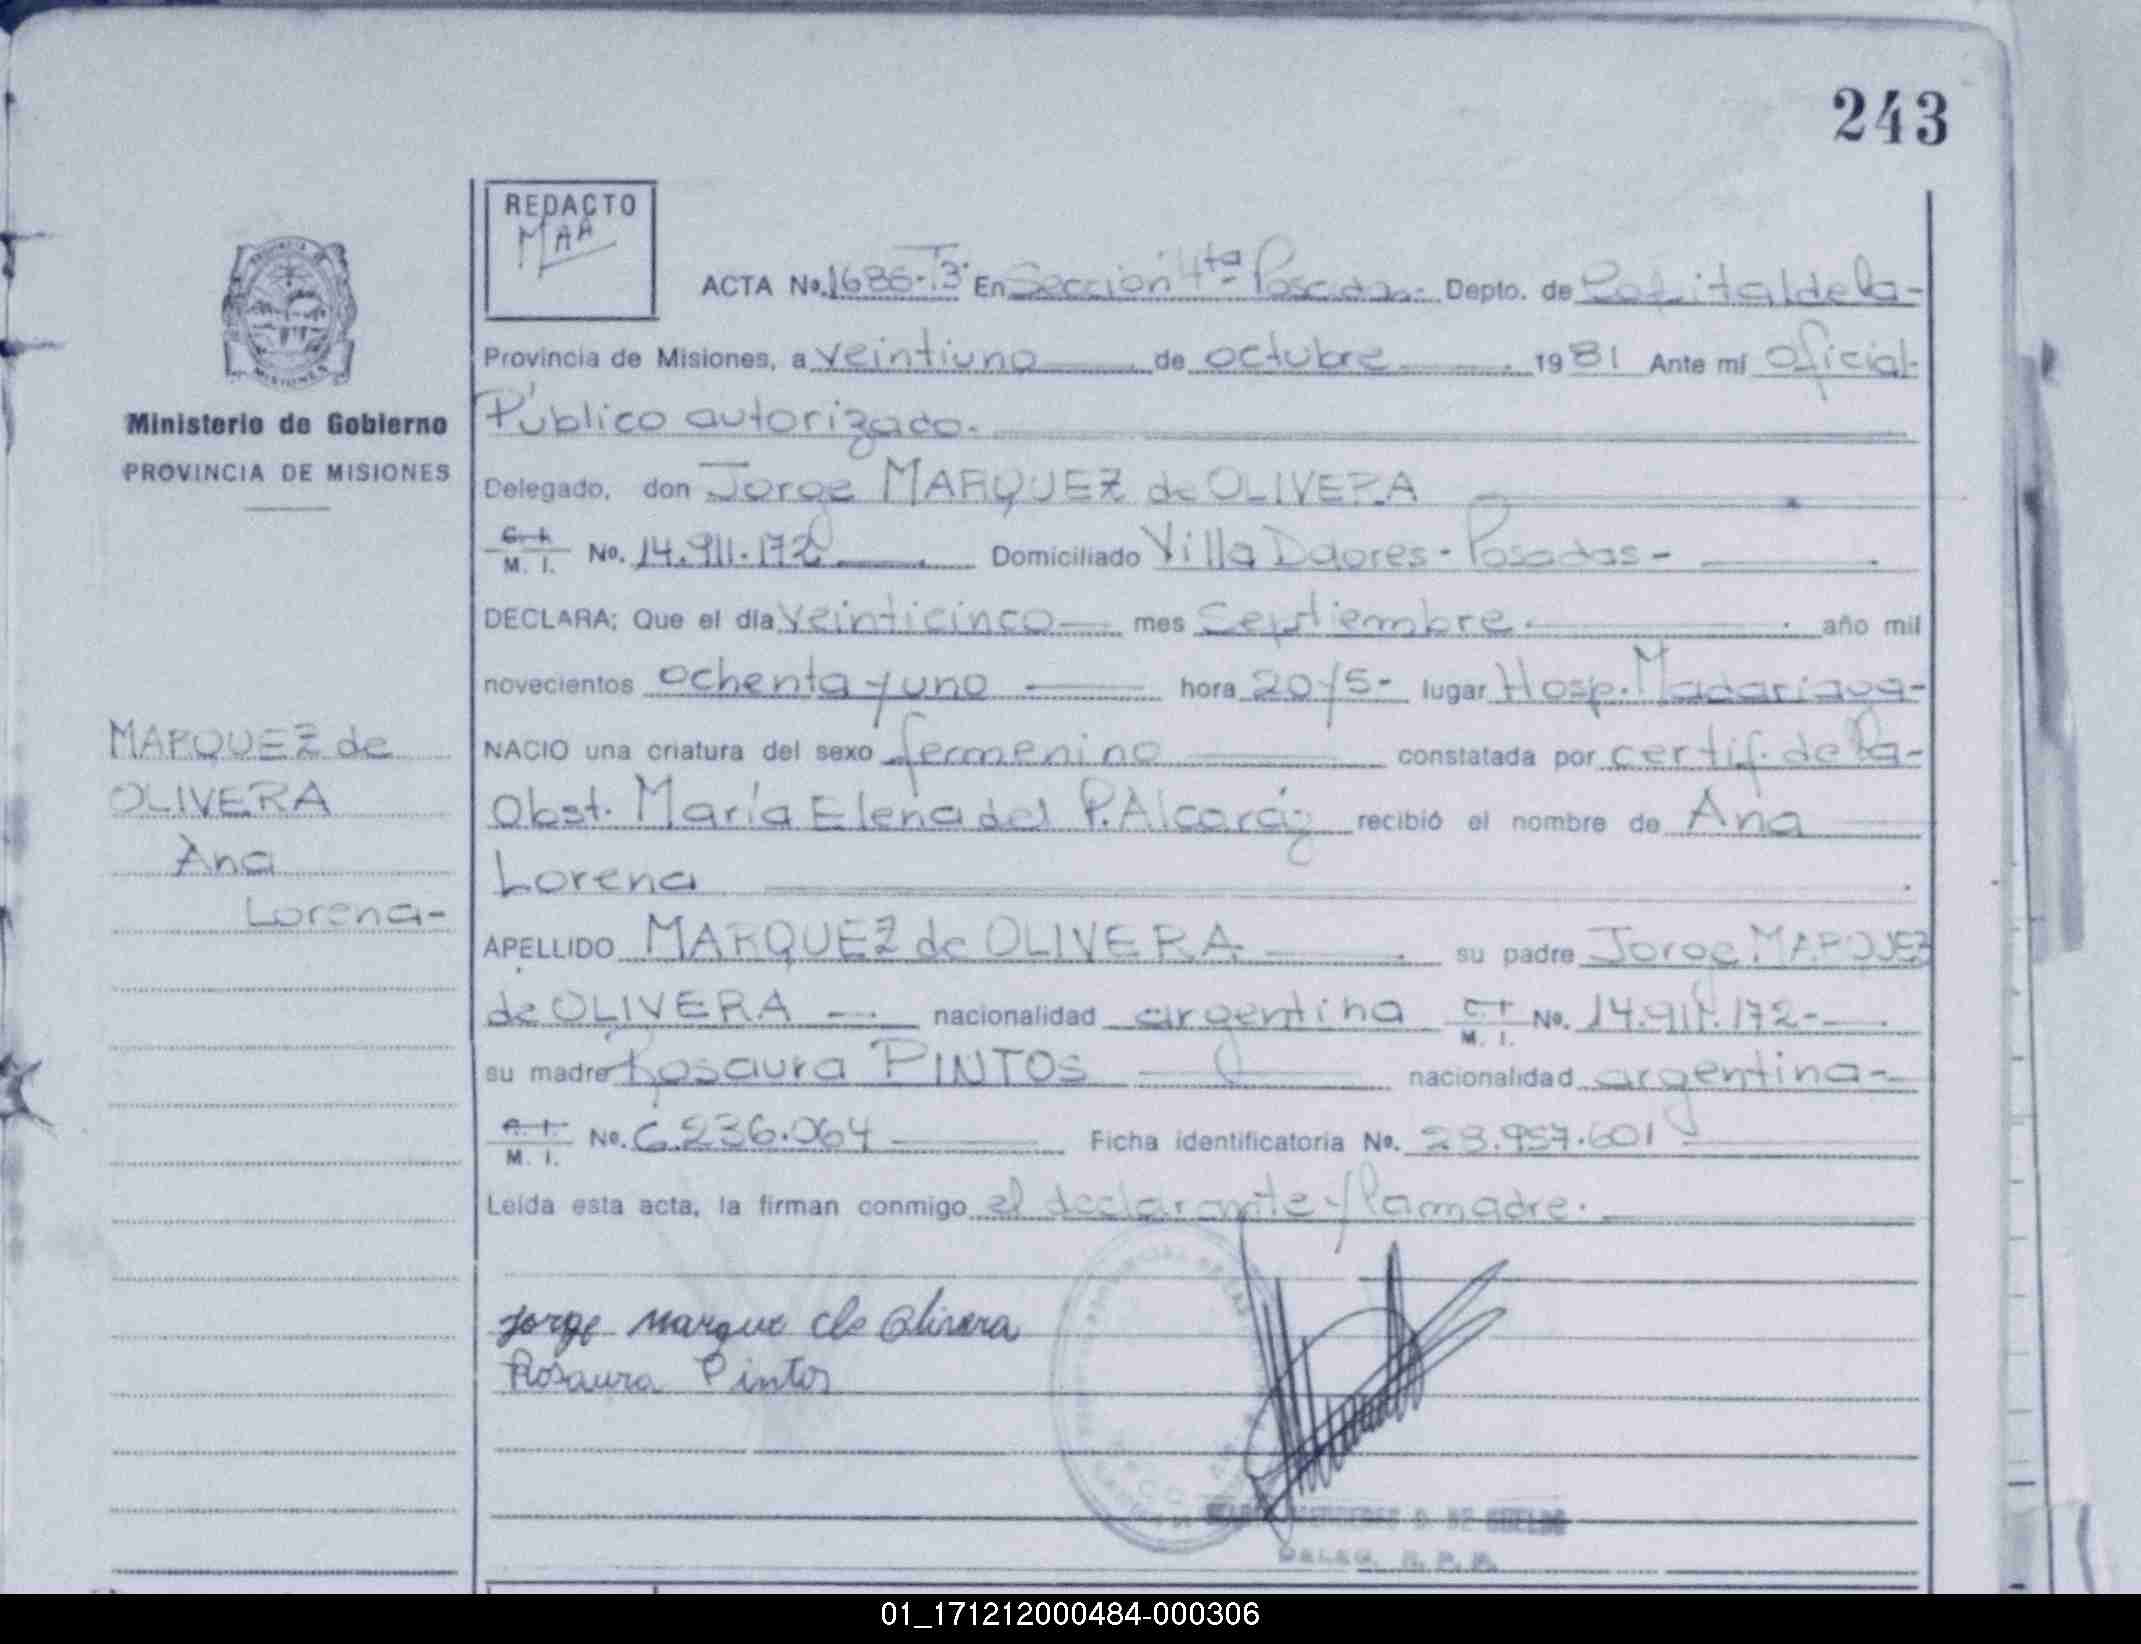 243
REDACTO
MAA
ACTA No. 1686-T3· En Sección 4ta Posadas- Depto. de Capital de la-
Provincia de Misiones, a veintiuno de octubre 1981 Ante mí Oficial
Público autorizado.
Ministerio de Gobierno
PROVINCIA DE MISIONES
Delegado, don Jorge MARQUEZ de OLIVERA
C. I. M. I. No. 14.911.172 Domiciliado Villa Daores - Posadas -
DECLARA: Que el día veinticinco mes Septiembre. año mil
novecientos ochenta y uno hora 20/5- lugar Hosp. Madariaga-
NACIO una criatura del sexo femenino constatada por certif. de la-
Obst. María Elena del P. Alcaráz recibió el nombre de Ana
Lorena
MARQUEZ de
OLIVERA
Ana
Lorena-
APELLIDO MARQUEZ de OLIVERA su padre Jorge MARQUEZ
de OLIVERA nacionalidad argentina C. I. M. I. No. 14.911.172-
su madre Rosaura PINTOS nacionalidad argentina-
C. I. M. I. No. 6.236.064 Ficha identificatoria No. 28.957.601
Leída esta acta, la firman conmigo el declarante y la madre.
Jorge Marque de Olivera
Rosaura Pintos
DELEG. R. P. P.
01_171212000484-000306